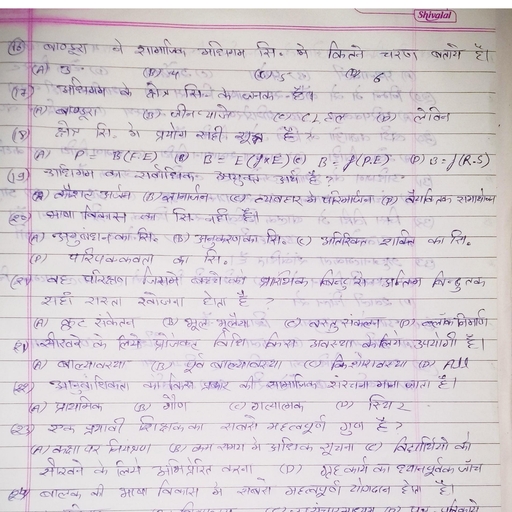 Shivalal
(16) बाण्डूरा ने सामाजिक अधिगम सि. के कितने चरण बताये हैं।
(A) 3 (B) 4 (C) 5 (D) 6
(17) अधिगम के क्षेत्र सि. के जनक है।
(A) बाण्डूरा (B) जीन प्याजे (C) C.L हल (D) लेविन
(18) क्षेत्र सि. में प्रयोग सही सूत्र है?
(A) P = B(F.E) (B) B = E(f×E) (C) B = f(P.E) (D) B = f(R-S)
(19) अधिगम का सर्वाधिक उपयुक्त अर्थ है?
(A) कौशल अर्जन (B) ज्ञानार्जन (C) व्यवहार में परिमार्जन (D) वैयक्तिक समायोजन
(20) भाषा विकास का सि. नहीं है।
(A) अनुबन्धन का सि. (B) अनुकरण का सि. (C) अतिरिक्त शक्ति का सि.
(D) परिपक्वता का सि.
(21) वह परीक्षण जिसमें बच्चे को प्रारंभिक बिन्दु से अन्तिम बिन्दु तक
सही रास्ता खोजना होता है?
(A) कूट संकेतन (B) भूल भूलैया (C) वस्तु संकलन (D) ब्लॉक निर्माण
21) सीखने के लिये प्रोजेक्ट विधि किस अवस्था के लिए उपयोगी है।
(A) बाल्यावस्था (B) पूर्व बाल्यावस्था (C) किशोरावस्था (D) All
(22) आनुवांशिकता को किस प्रकार की सामाजिक संरचना माना जाता है।
(A) प्राथमिक (B) गौण (C) गत्यात्मक (D) स्थिर
(23) एक प्रभावी शिक्षक का सबसे महत्वपूर्ण गुण है?
(A) कक्षा पर नियंत्रण (B) कम समय में अधिक सूचना (C) विद्यार्थियों को
सीखने के लिये अभिप्रेरित करना (D) गृहकार्य का ध्यानपूर्वक जाँच
(24) बालक की भाषा विकास में सबसे महत्वपूर्ण योगदान होता है।